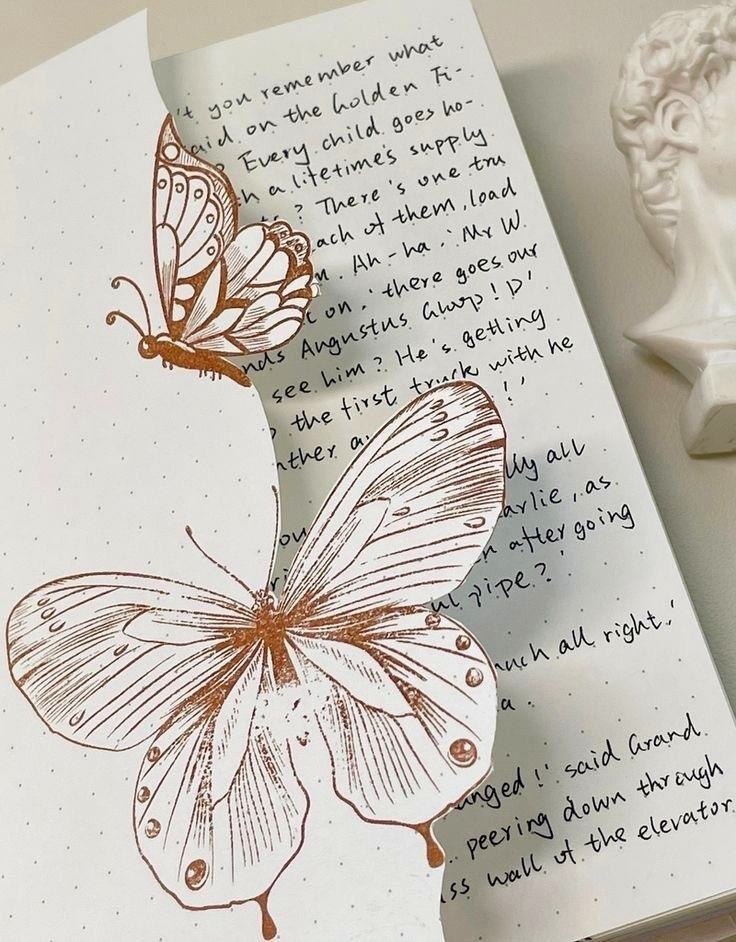 't you remember what
aid on the Golden Ti-
Every child goes ho-
h a lifetime's supply
? There's one tru
ach of them, load
. Ah-ha.' Mr W
t on, 'there goes our
nds Augustus Gloop! D'
see him? He's getting
the first truck with he
ther a
!'
lly all
arlie, as
n after going
ul pipe?'
much all right.'
a.
anged!' said Grand
.. peering down through
ss wall of the elevator.